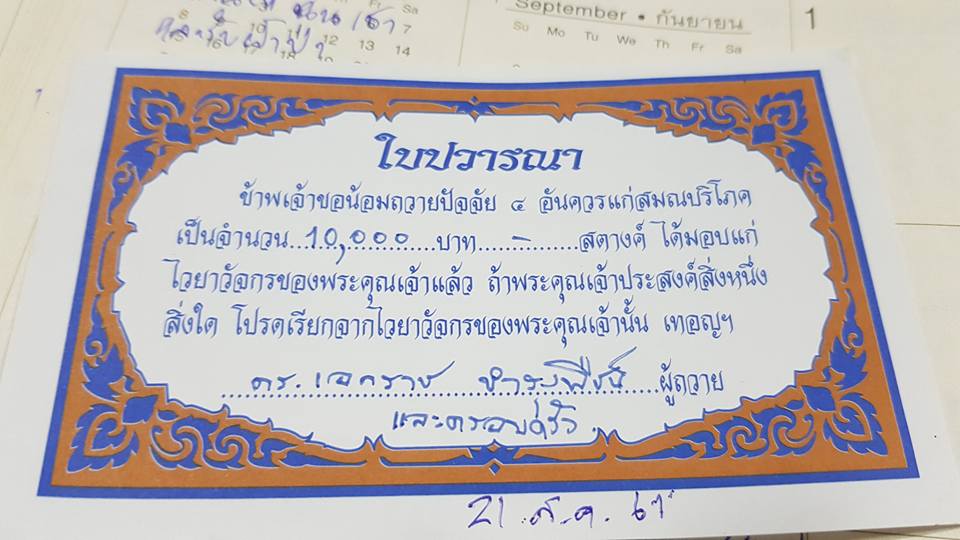 September • กันยายน
1
Su Mo Tu We Th Fr Sa
7
12 13 14
ใบปวารณา
ข้าพเจ้าขอน้อมถวายปัจจัย ๔ อันควรแก่สมณบริโภค
เป็นจำนวน...10,000...บาท...-...สตางค์ ได้มอบแก่
ไวยาวัจกรของพระคุณเจ้าแล้ว ถ้าพระคุณเจ้าประสงค์สิ่งหนึ่ง
สิ่งใด โปรดเรียกจากไวยาวัจกรของพระคุณเจ้านั้น เทอญฯ
ดร.เอกราช ผู้ถวาย
และครอบครัว
21 ส.ค.